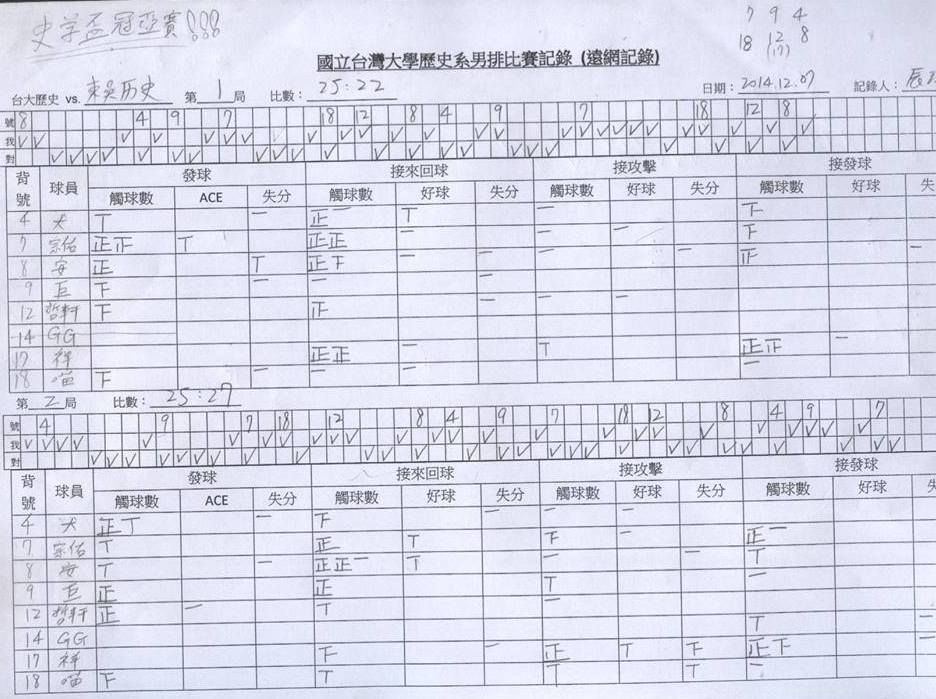 史学盃冠亞賽!!!
7 9 4
18 12 8
(17)
國立台灣大學歷史系男排比賽記錄 (遠網記錄)
台大歷史 vs. 東吳历史 第 1 局 比數: 25:22 日期: 2014.12.07 記錄人:
號 8 4 9 7 18 12 8 4 9 7 18 12 8
我
對
背號 球員 發球 接來回球 接攻擊 接發球
觸球數 ACE 失分 觸球數 好球 失分 觸球數 好球 失分 觸球數 好球 失
4 大 T 一 正一 T 一 下
7 宗佑 正正 T 正正 一 一 一 下
8 安 正 T 正下 一 一 一 一 正 一
9 巨 下 一 一 一
12 哲軒 下 正 一 一 一
14 GG
17 祥 正正 一 T 正正 一
18 喵 下 一 一 一 一
第 2 局 比數: 25:27
號 4 9 7 18 12 8 4 9 7 18 12 8 4 9 7
我
對
背號 球員 發球 接來回球 接攻擊 接發球
觸球數 ACE 失分 觸球數 好球 失分 觸球數 好球 失分 觸球數 好球
4 大 正T 一 下 一 一 一
7 宗佑 T 正 T 下 一 正一
8 安 T 一 正正一 T 一 一 T
9 巨 正 正 T 一
12 哲軒 正 一 T 一
14 GG T 一
17 祥 下 一 正 T 下 正下 一
18 喵 下 T T T 一